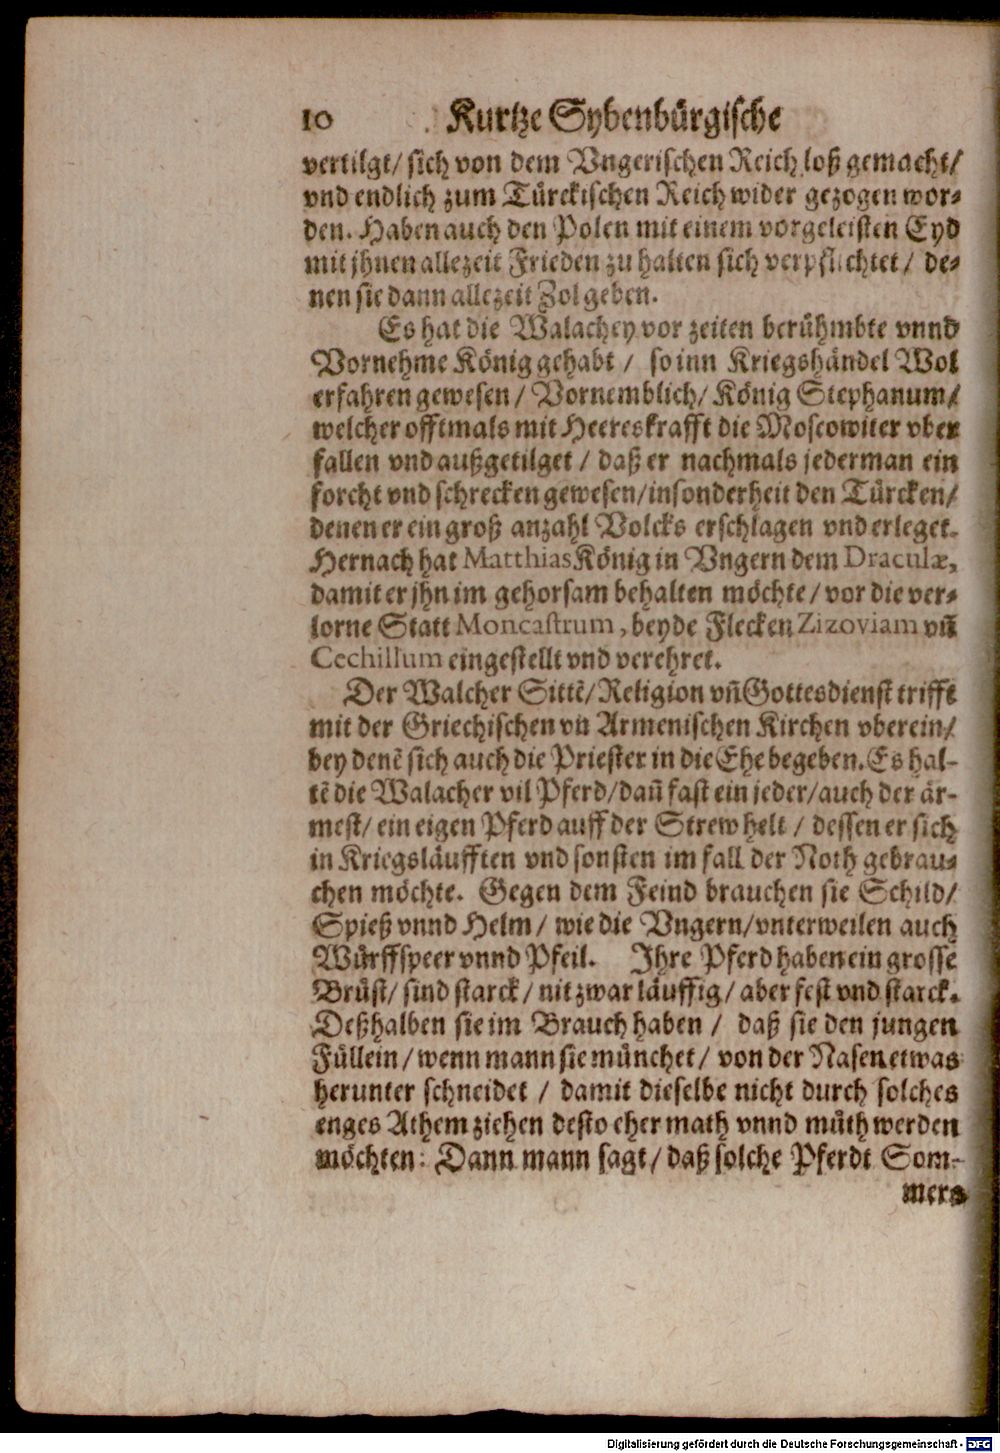 10 Kurtze Sybenbürgische
vertilgt/ sich von dem Vngerischen Reich loß gemacht/
vnd endlich zum Türckischen Reich wider gezogen wor-
den. Haben auch den Polen mit einem vorgeleisten Eyd
mit jhnen allezeit Frieden zu halten sich verpflichtet / de-
nen sie dann allezeit Zol geben.
Es hat die Walachey vor zeiten berühmbte vnnd
Vornehme König gehabt / so inn Kriegshändel Wol
erfahren gewesen / Vornemblich/ König Stephanum/
welcher offtmals mit Heereskrafft die Moscowiter vber
fallen vnd außgetilget / daß er nachmals jederman ein
forcht vnd schrecken gewesen/insonderheit den Türcken/
denen er ein groß anzahl Volcks erschlagen vnd erleget.
Hernach hat Matthias König in Vngern dem Draculæ,
damit er jhn im gehorsam behalten möchte / vor die ver-
lorne Statt Moncastrum, beyde Flecken Zizoviam vñ
Cechillum eingestellt vnd verehret.
Der Walcher Sittẽ/ Religion vñ Gottesdienst trifft
mit der Griechischen vñ Armenischen Kirchen vberein/
bey denẽ sich auch die Priester in die Ehe begeben. Es hal-
tẽ die Walacher vil Pferd/dañ fast ein jeder/auch der är-
mest/ ein eigen Pferd auff der Strew helt / dessen er sich
in Kriegsläufften vnd sonsten im fall der Noth gebrau-
chen möchte. Gegen dem Feind brauchen sie Schild/
Spieß vnnd Helm / wie die Vngern/vnterweilen auch
Würffspeer vnnd Pfeil. Ihre Pferd haben ein grosse
Brüst/ sind starck / nit zwar läuffig / aber fest vnd starck.
Deßhalben sie im Brauch haben / daß sie den jungen
Füllein / wenn mann sie münchet / von der Nasen etwas
herunter schneidet / damit dieselbe nicht durch solches
enges Athem ziehen desto eher math vnnd müth werden
möchten: Dann mann sagt / daß solche Pferdt Som-
mers
Digitalisierung gefördert durch die Deutsche Forschungsgemeinschaft - DFG